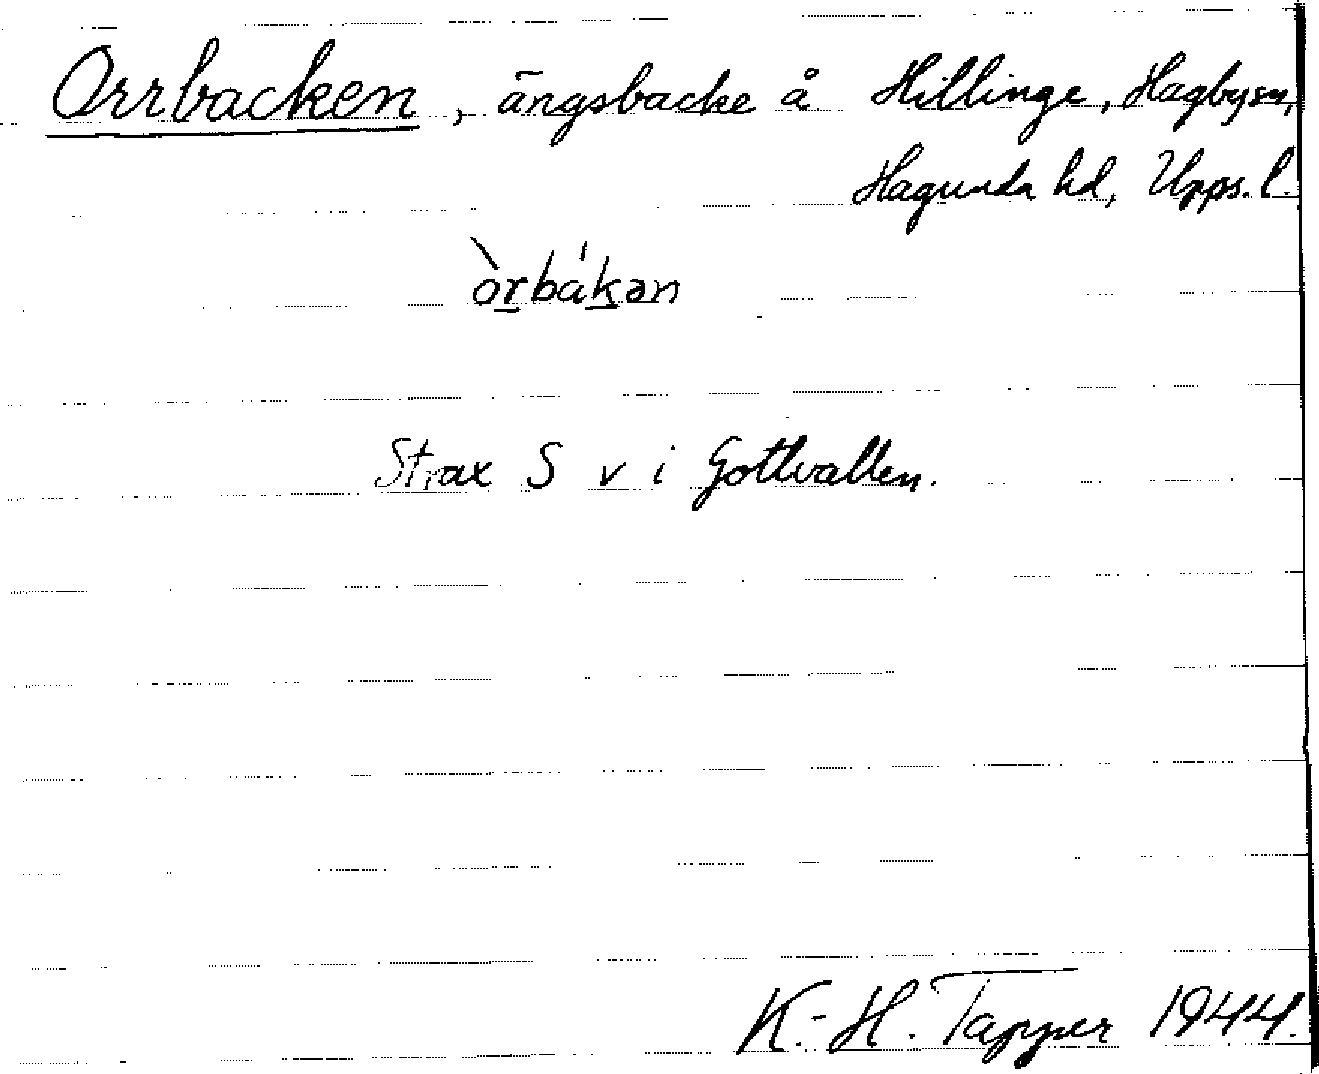 Orrbacken, ängsbacke å Hillinge, Hagby sn,
Hagunda hd, Upps. l.
òrbákən
Strax S v i Gottvallen.
K.-H. Tapper 1944.